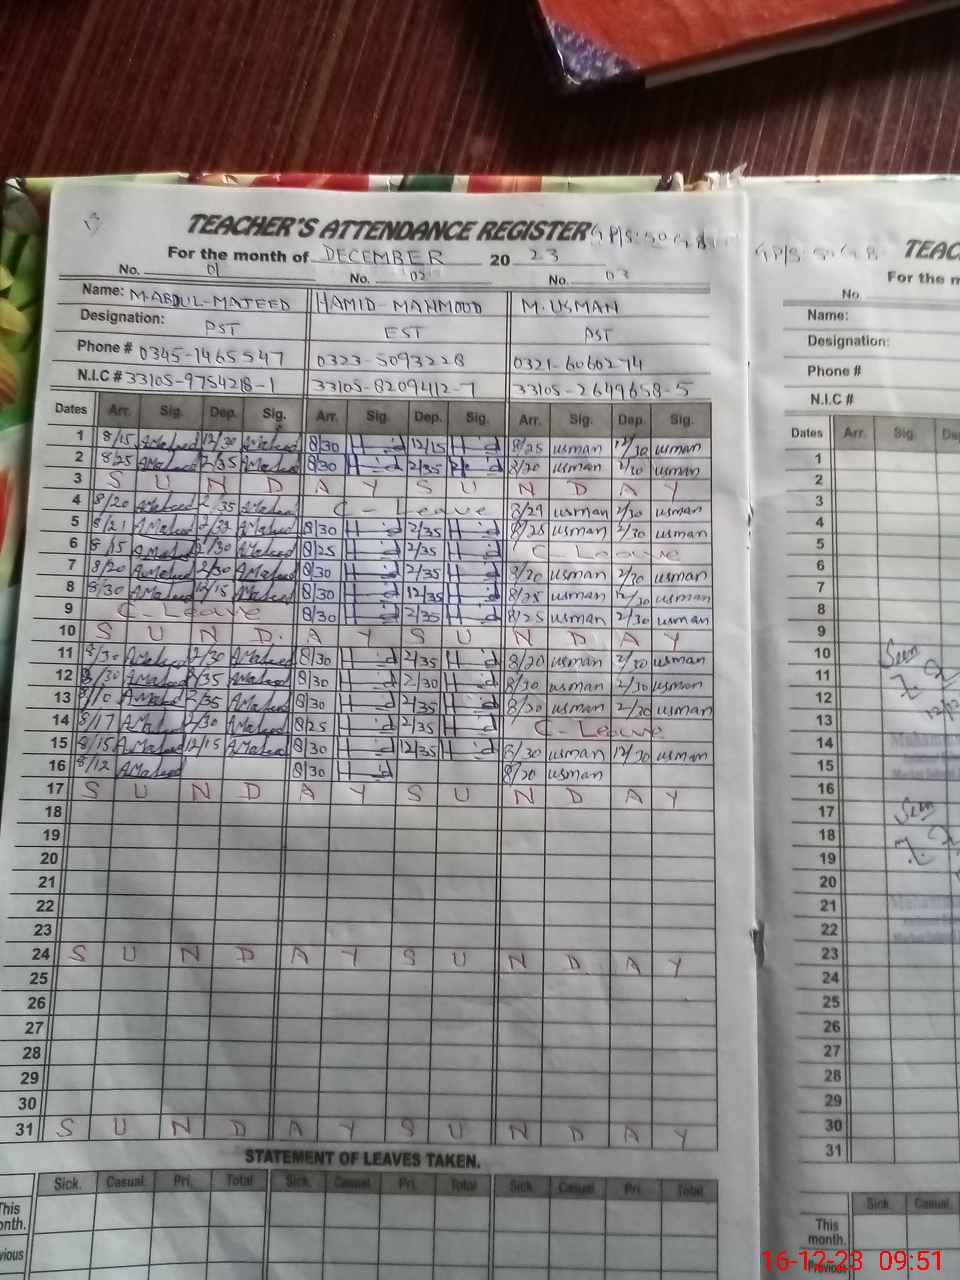 TEACHER'S ATTENDANCE REGISTER
For the month of DECEMBER 2023
No. 01 No. 02 No. 03
Name: M.ABDUL-MAJEED HAMID-MAHMOOD M.USMAN
Designation: PST EST AST
Phone # 0345-1465547 0323-5093228 0321-6060274
N.I.C # 33105-9754218-1 33105-8209412-7 33105-2649658-5
Dates Arr. Sig. Dep. Sig. Arr. Sig. Dep. Sig. Arr. Sig. Dep. Sig.
1 8/15 AMajeed 12/30 AMajeed 8/30 H-id 12/15 H-id 8/25 usman 12/30 usman
2 8/25 AMajeed 2/35 AMajeed 8/30 H-id 2/35 H-id 8/20 usman 2/30 usman
3 S U N D A Y S U N D A Y
4 8/20 AMajeed 2/35 AMajeed C-Leave 8/29 usman 2/30 usman
5 8/21 AMajeed AMajeed 8/30 H-id 2/35 H-id 8/25 usman 2/30 usman
6 8/15 AMajeed 2/30 AMajeed 8/25 H-id 2/35 H-id C-Leave
7 8/20 AMajeed 2/30 AMajeed 8/30 H-id 2/35 H-id 8/20 usman 2/30 usman
8 8/30 AMajeed 12/15 AMajeed 8/30 H-id 12/35 H-id 8/25 usman 12/30 usman
9 C-Leave 8/30 H-id 2/35 H-id 8/25 usman 2/30 usman
10 S U N D. A Y S U N D A Y
11 8/30 AMajeed 2/30 AMajeed 8/30 H-id 2/35 H-id 8/20 usman 2/30 usman
12 8/30 AMajeed 2/35 AMajeed 8/30 H-id 2/30 H-id 8/30 usman 2/30 usman
13 8/10 AMajeed 2/35 AMajeed 8/30 H-id 2/35 H-id 8/20 usman 2/30 usman
14 8/17 AMajeed 2/30 AMajeed 8/25 H-id 2/35 H-id C-Leave
15 8/15 AMajeed 12/15 AMajeed 8/30 H-id 12/35 H-id 8/30 usman 12/30 usman
16 8/12 AMajeed 8/30 H-id 8/20 usman
17 S U N D A Y S U N D A Y
18
19
20
21
22
23
24 S U N D A Y S U N D A Y
25
26
27
28
29
30
31 S U N D A Y S U N D A Y
STATEMENT OF LEAVES TAKEN.
Sick. Casual Pri. Total Sick. Casual Pri. Total Sick. Casual Pri. Total
This
month.
TEAC
For the m
No.
Name:
Designation:
Phone #
N.I.C #
Dates Arr. Sig. De
1
2
3
4
5
6
7
8
9
10 Seen
11
12
13
14
15
16
17 Seen
18
19
20
21
22
23
24
25
26
27
28
29
30
31
Sick. Casual
This
month.
Previous
16-12-23 09:51